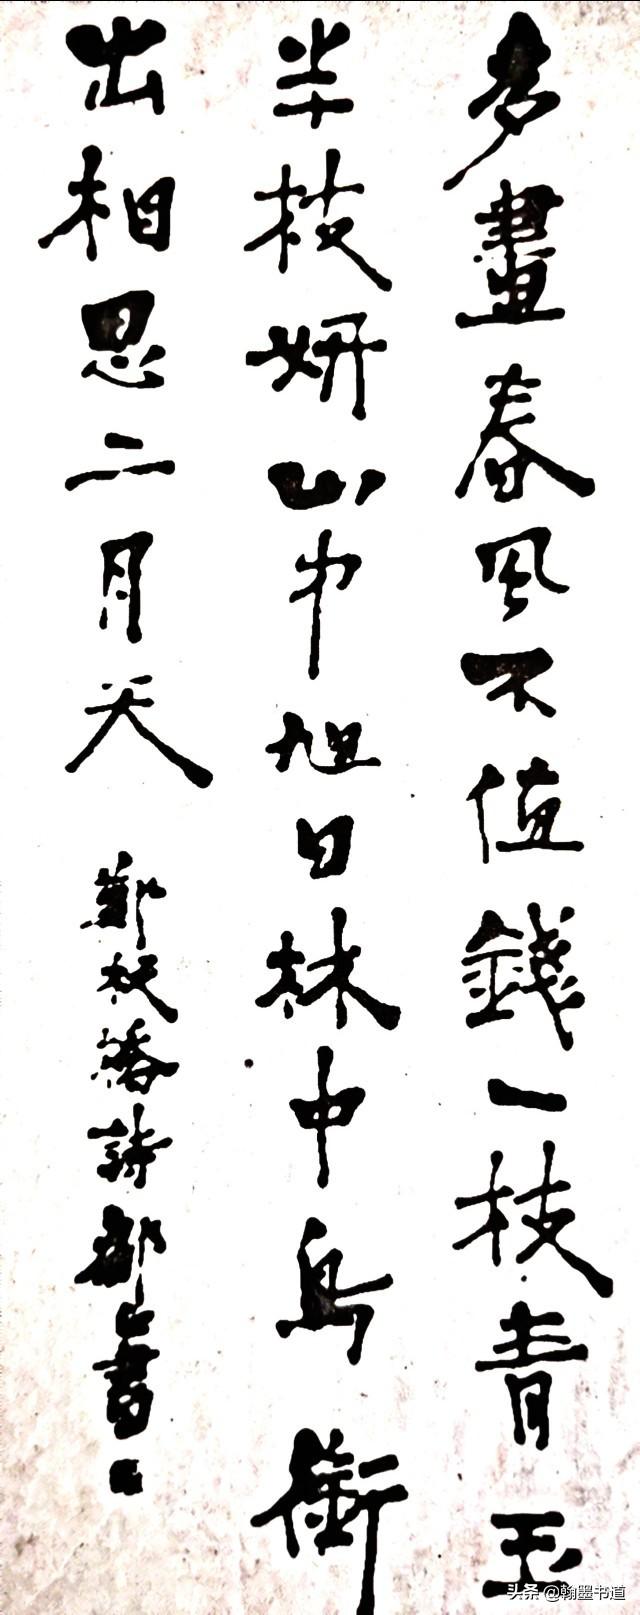 多畫春風不值錢一枝青玉
半枝妍山中旭日林中鳥銜
出相思二月天
鄭板橋詩 書
头条 @翰墨书道